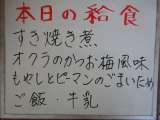 本日の給食
すき焼き煮
オクラのかつお梅風味
もやしとピーマンのごまいため
ご飯・牛乳